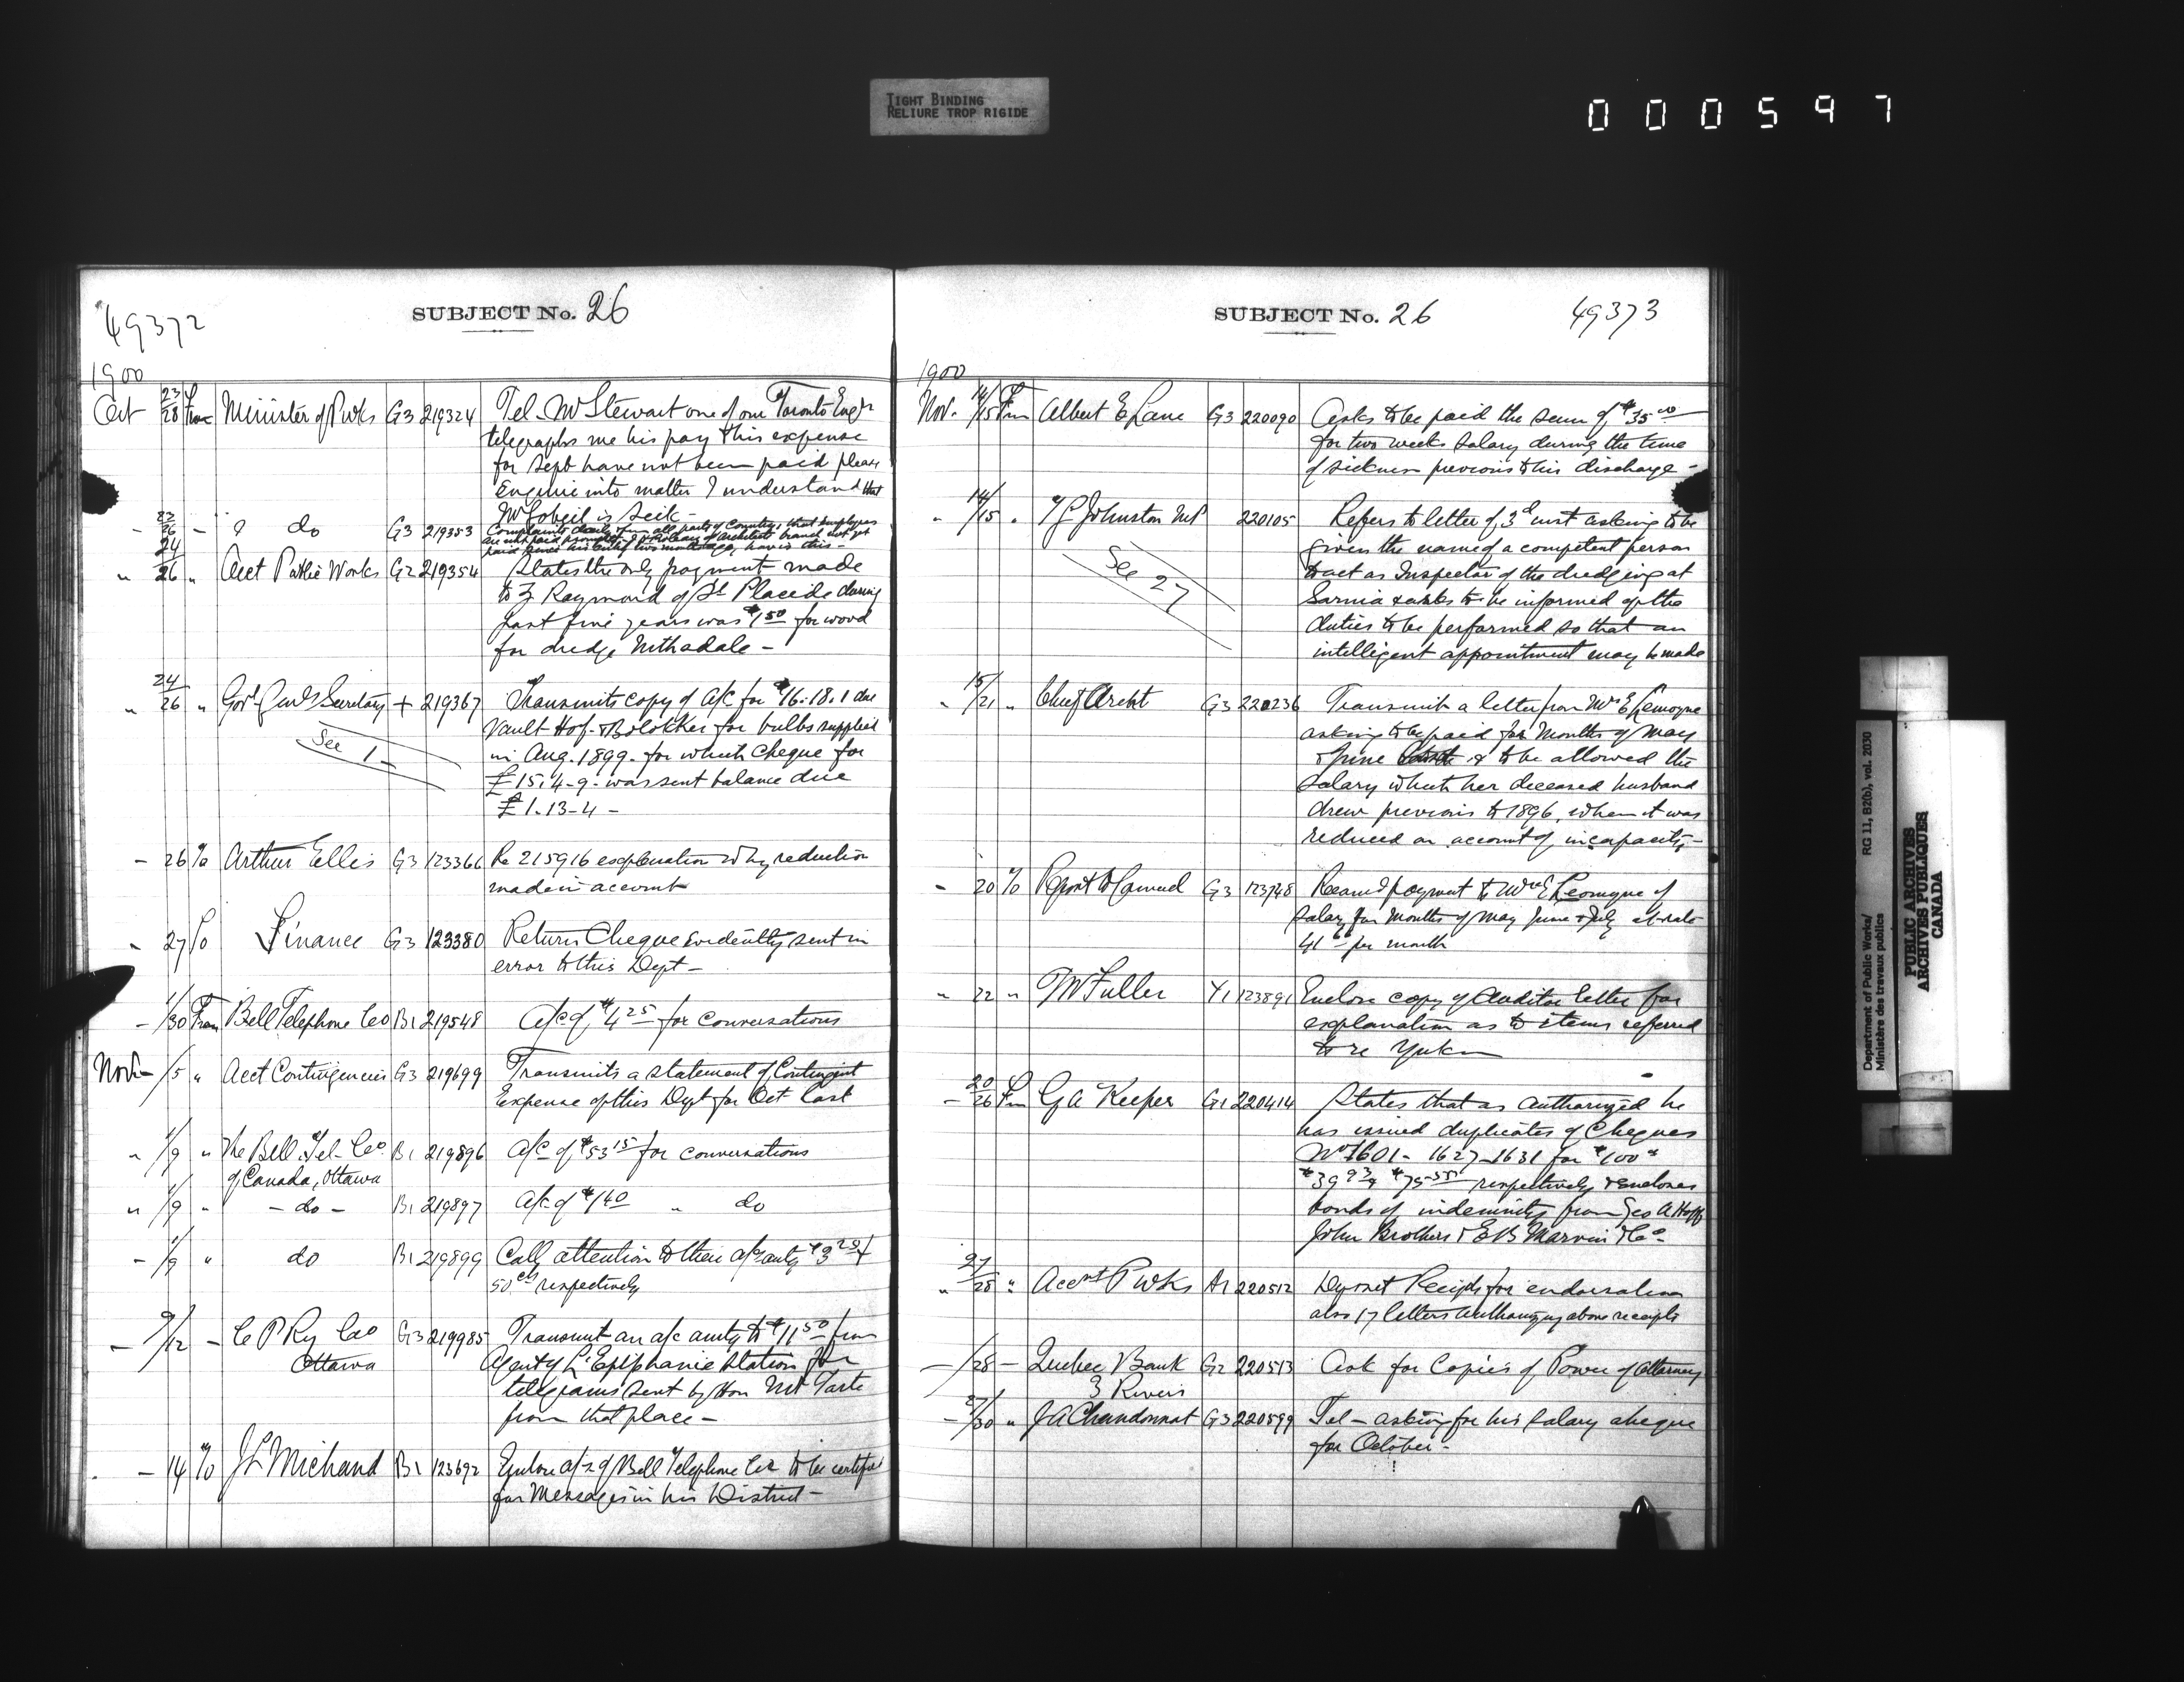 TIGHT BINDING
RELIURE TROP RIGIDE
000597
49372
SUBJECT No. 26
1900
Oct 23/28 From Minister of P Wks G3 219324 Tel. Mr Stewart one of our Toronto Engrs
telegraphs me his pay & his expense
for Sept have not been paid please
Enquire into matter I understand that
Mr Gobeil is sick -
- 22/26 - " do G3 219353 Complaints daily from all parts of Country, that employees
are not paid promptly of Architects branch not yet
paid since two months ago, how is this -
" 24/26 " Acct Public Works G2 219354 States the only payment made
to Z Raymond of St Placide during
past five years was $1.50 for wood
for dredge Nithsdale -
" 24/26 " Govr Genls Secretary + 219367 Transmits copy of a/c for £16.18.1 due
Vault Hof & Blokker for bulbs supplied
See 1 - in Aug. 1899. for which Cheque for
£15.4.9. was sent balance due
£1-13-4 -
- 26 To Arthur Ellis G3 123366 Re 215916 explanation why reduction
made in account
" 27 To Finance G3 123380 Return Cheque evidently sent in
error to this Dept -
- 1/30 From Bell Telephone Co B1 219548 A/c of $4.25 for conversations
Nov - /5 " Acct Contingencies G3 219699 Transmits a statement of Contingent
Expense of this Dept for Oct last
" /9 " The Bell Tel- Co B1 219896 A/c of $53.15 for conversations
of Canada, Ottawa
" /9 " - do - B1 219897 A/c of $1.40 " do
- /9 " do B1 219899 Call attention to their a/c amtg $3.25 &
50 cts respectively
- 9/12 - C P Ry Co G3 219985 Transmit an a/c amtg to $11.50 from
Ottawa Agent of L'Epiphanie station for
telegrams sent by Hon Mr Tarte
from that place -
- 14 To J L Michaud B1 123692 Enclose a/cs of Bell Telephone Co to be certified
for Messages in his District -
SUBJECT No. 26
49373
1900
Nov. 14/15 From Albert E Lane G3 220090 Asks to be paid the sum of $35.00
for two weeks salary during the time
of sickness previous to his discharge -
" 14/15 " Johnston MP 220105 Refers to letter of 3d inst asking to be
given the name of a competent person
See 27 to act as Inspector of the dredging at
Sarnia & asks to be informed of the
duties to be performed so that an
intelligent appointment may be made
" 15/21 " Chief Archt G3 220236 Transmit a letter from Mrs E Lemoyne
asking to be paid for Months of May
& June & to be allowed the
Salary which her deceased husband
drew previous to 1896, when it was
reduced on account of incapacity -
- 20 To Report to Council G3 123748 Recomd payment to Mrs E Lemoyne of
salary for Months of May June & July at rate
41.66 per month
" 22 " T W Fuller Y1 123891 Enclose copy of Auditor letter for
explanation as to items referred
to re Yukon
- 20/26 From G A Keefer G1 220414 States that as Authorized he
has issued duplicates of Cheques
No 1601 - 1627 - 1631 for $100
$39.93 & $75.55 respectively & encloses
bonds of indemnity from Geo A Huff
John Brothers & E B Marvin & Co -
" 27/28 " Accnt P Wks A1 220512 Deposit Receipts for endorsation
also 17 letters Authorizing above receipts
- /28 - Quebec Bank G2 220513 Ask for Copies of Power of Attorney
3 Rivers
- 27/30 " J A Chandonnat G3 220599 Tel - asking for his Salary cheque
for October -
Department of Public Works/ RG 11, B2(b), vol. 2030
Ministère des travaux publics
PUBLIC ARCHIVES
ARCHIVES PUBLIQUES
CANADA